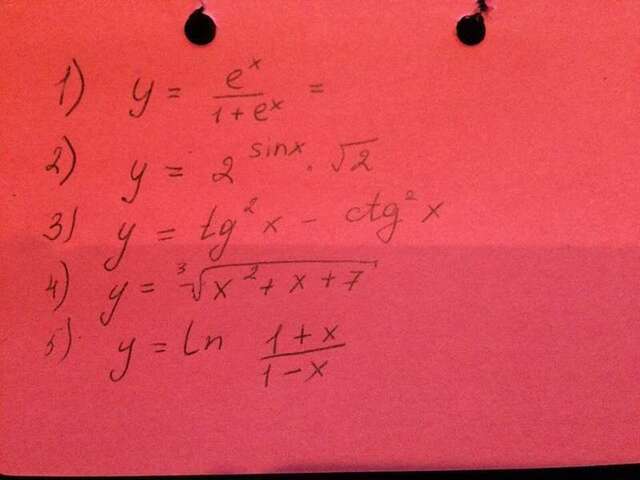 1) y = e^x / (1 + e^x) =
2) y = 2^sinx · √2
3) y = tg²x − ctg²x
4) y = ³√(x² + x + 7)
5) y = ln (1 + x) / (1 − x)